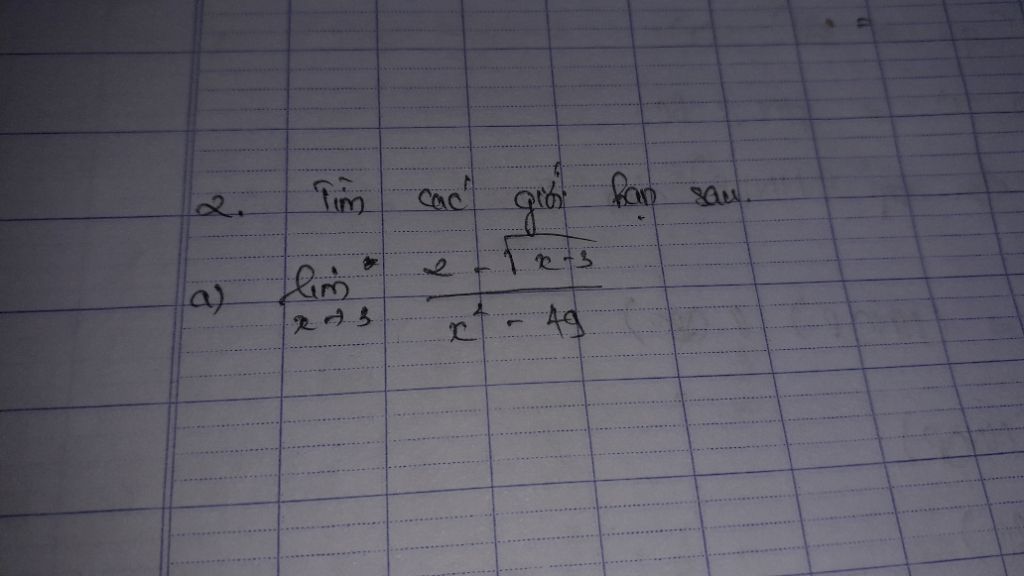 2. Tìm các giới hạn sau.
a) lim x→3 (2 - √(x-3)) / (x² - 49)